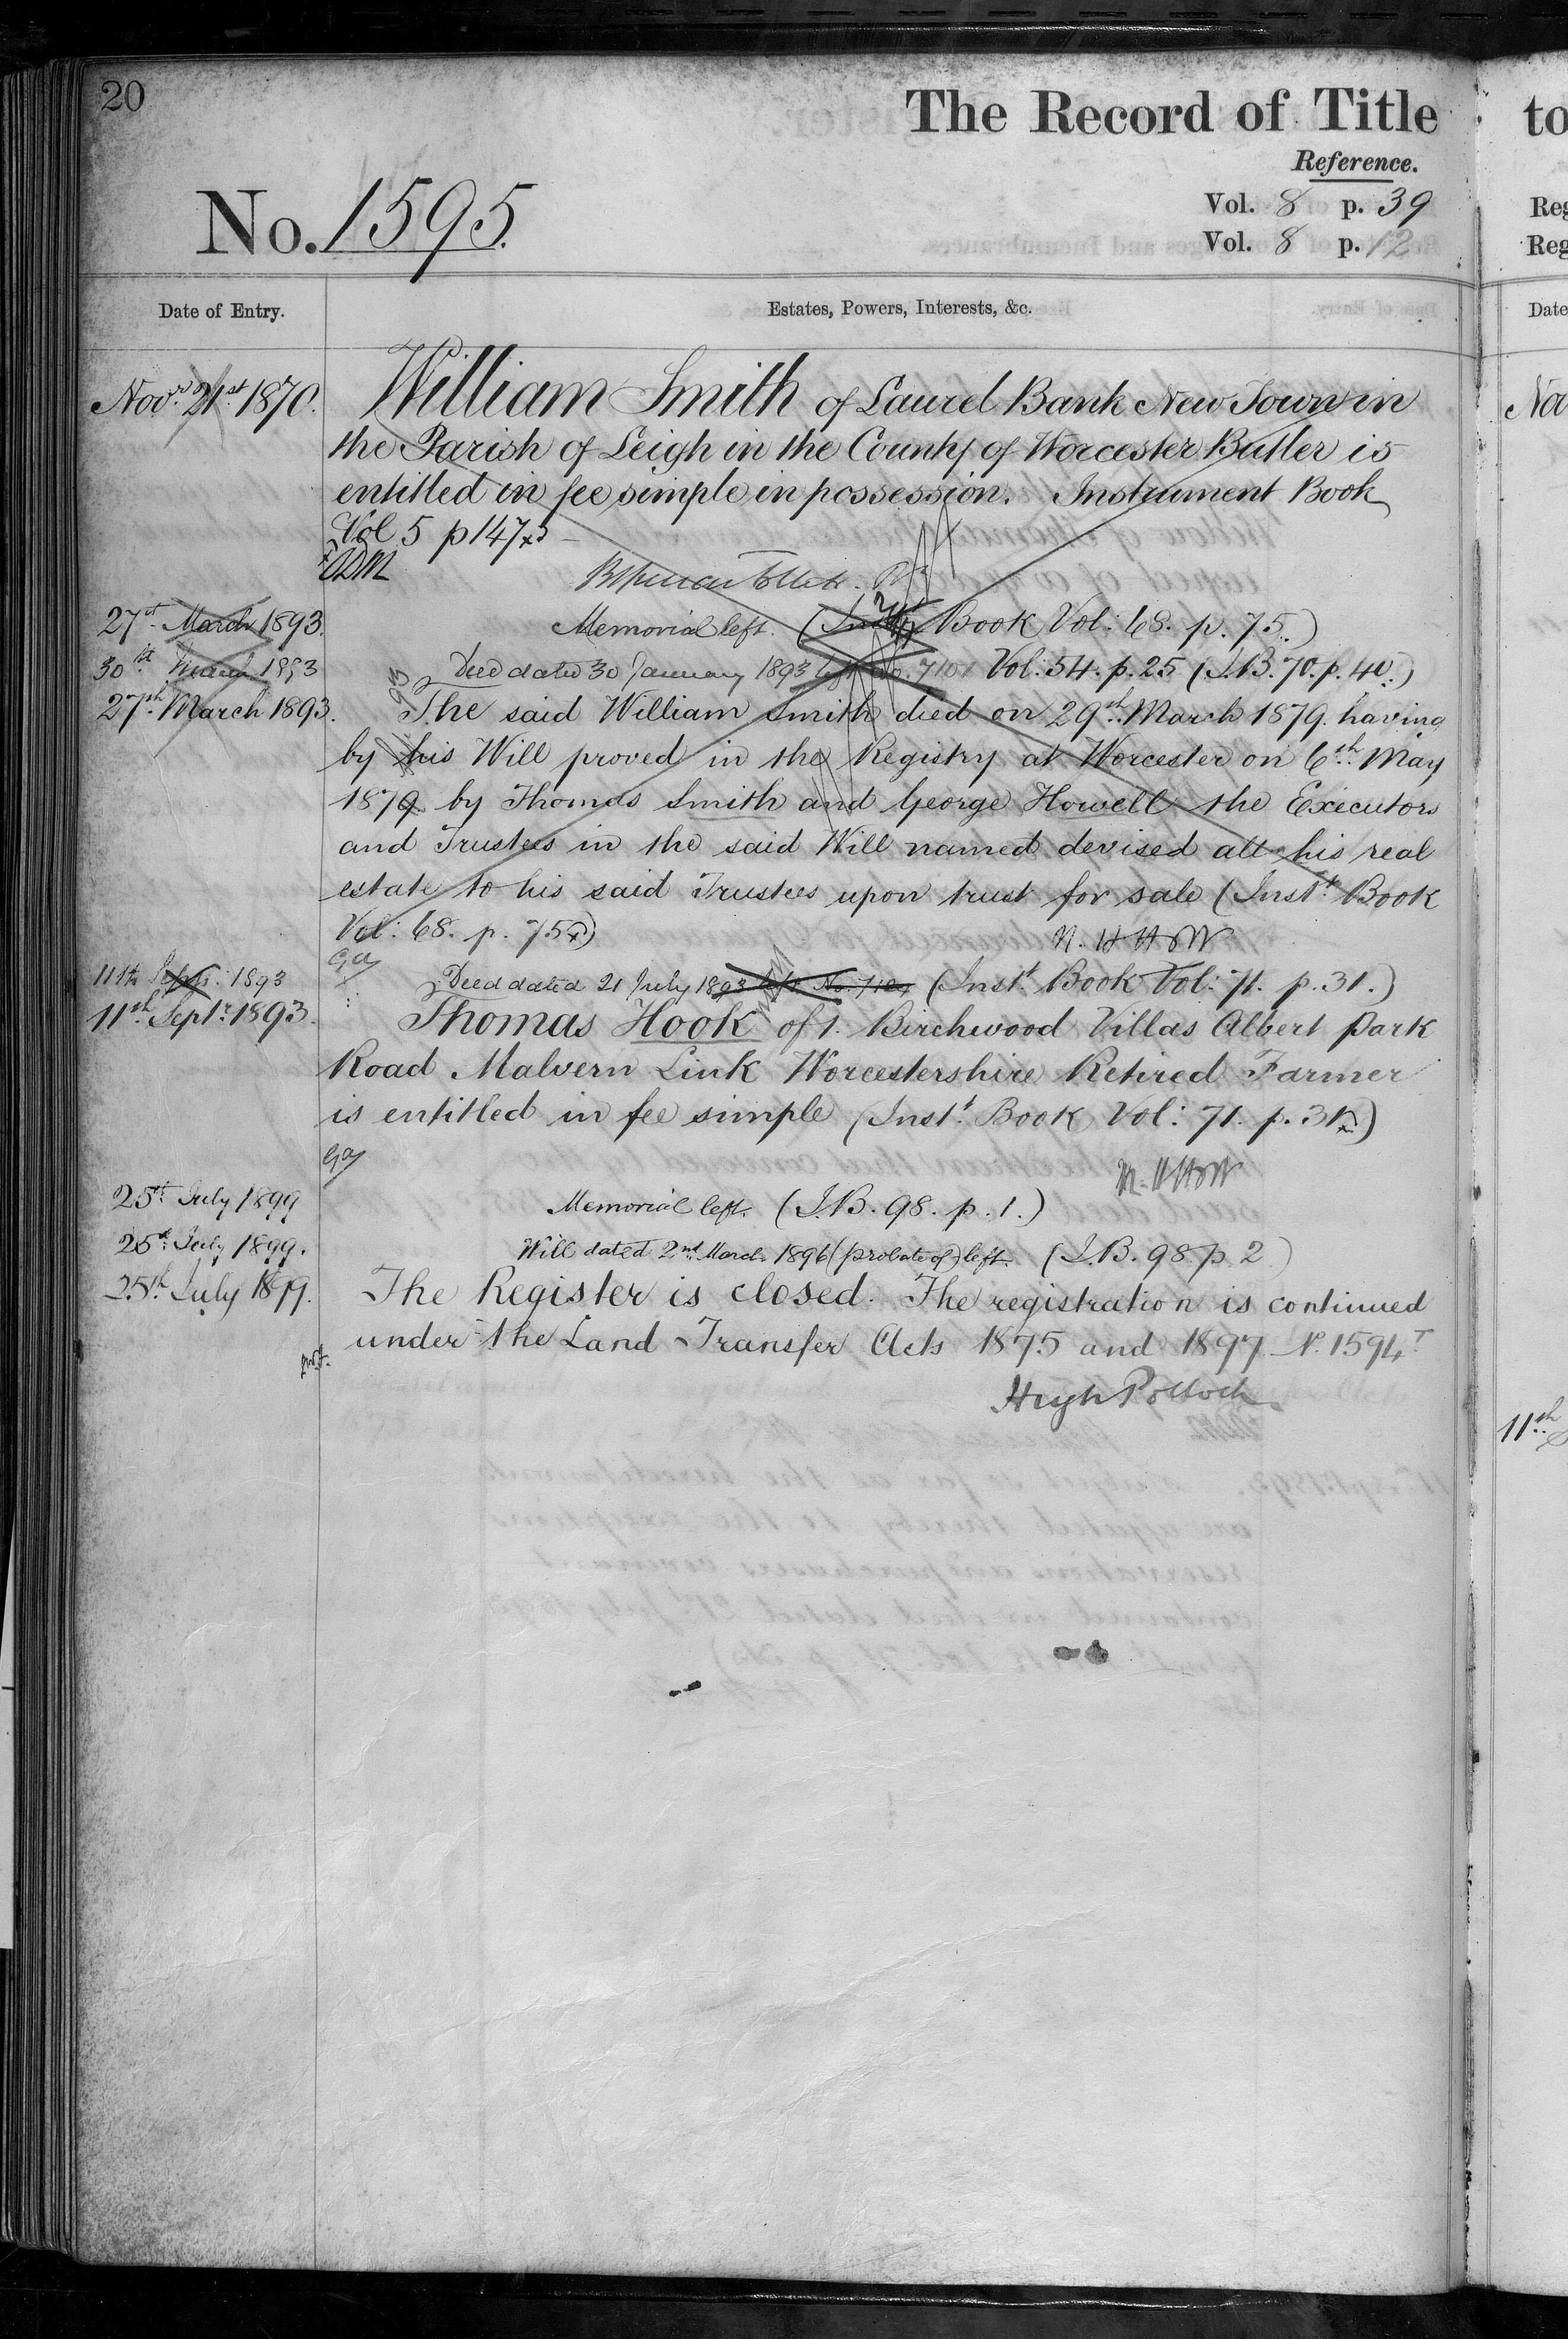 20
The Record of Title
to
Reference.
No. 1595.
Vol. 8 p. 39
Vol. 8 p. 12
Reg
Reg
Date of Entry.
Estates, Powers, Interests, &c.
Date
Novr. 21st 1870.
William Smith of Laurel Bank New Town in
the Parish of Leigh in the County of Worcester Butler is
entitled in fee simple in possession. Instrument Book
Vol 5 p 147
27st March 1893.
Memorial left. (Inst Book Vol: 68. p. 75.)
30st March 1893
Deed dated 30 January 1893 left No. 7101 Vol: 54. p. 25 (I.B. 70. p. 40.)
27th March 1893.
The said William Smith died on 29th March 1879. having
by his Will proved in the Registry at Worcester on 6th May
1879 by Thomas Smith and George Howell the Executors
and Trustees in the said Will named devised all his real
estate to his said Trustees upon trust for sale (Instt Book
Vol: 68. p. 75)
11th Septr. 1893
Deed dated 21 July 1893 left No. (Instt. Book Vol: 71. p. 31.)
11th Septr. 1893.
Thomas Hook of 1. Birchwood Villas Albert Park
Road Malvern Link Worcestershire Retired Farmer
is entitled in fee simple (Instt. Book Vol: 71. p. 31)
25th July 1899
Memorial left. (I.B. 98. p. 1.)
25th July 1899.
Will dated 2nd March 1896 (probate of) left. (I.B. 98 p. 2)
25th July 1899.
The Register is closed. The registration is continued
under the Land Transfer Acts 1875 and 1897 No. 1594
Hugh Pollock
11th